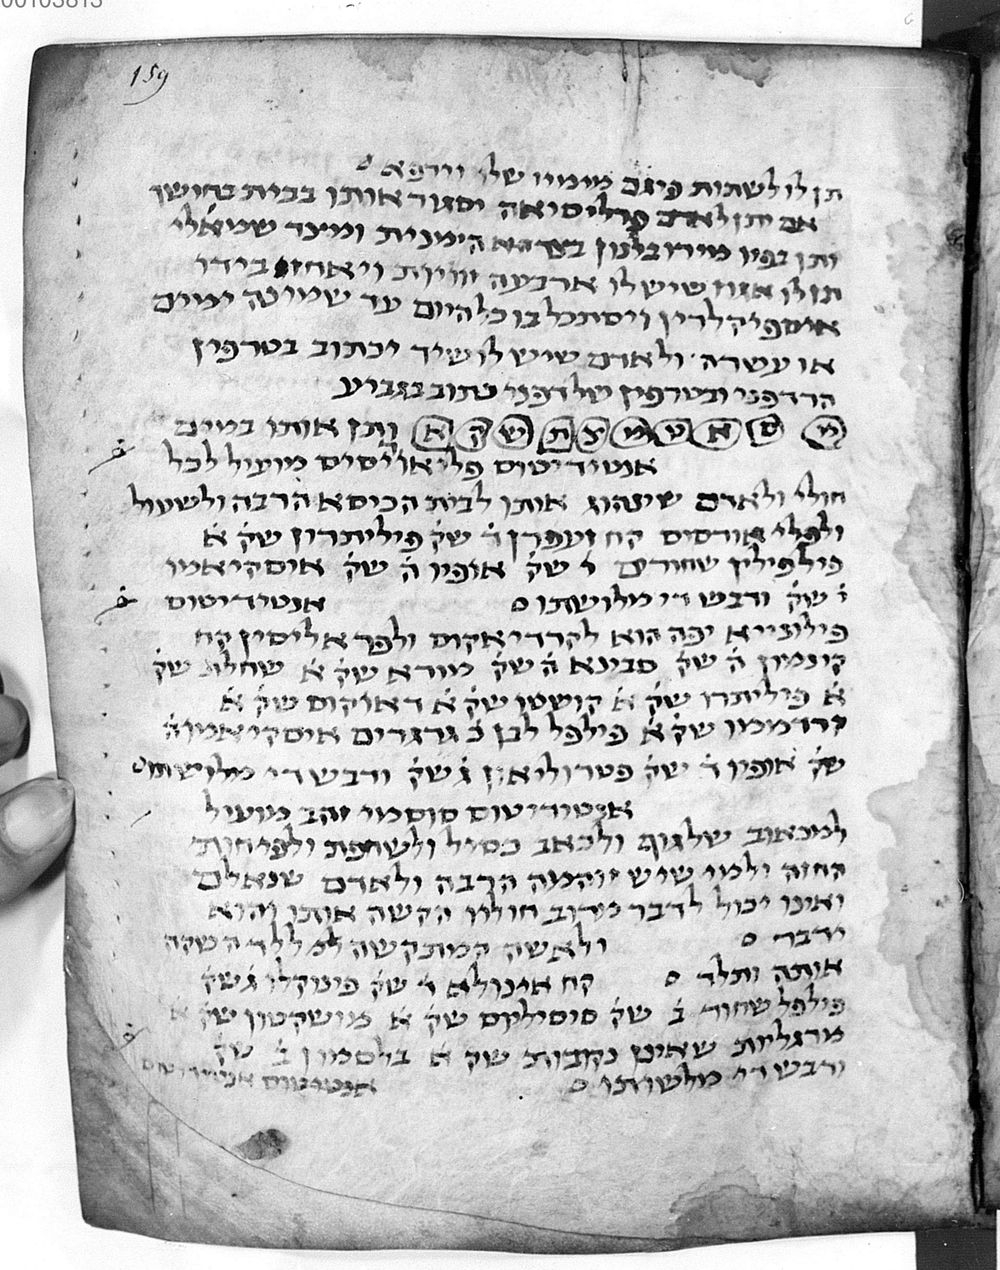 159
תן לו לשתות פיגם מימיו שלו וירפא
אם יתן לאדם פרליסיאה יסגור אותו בבית בחושך
ותן בפיו מירובלנון בצד הימנית ומצד שמאלי
תן לו אגוז שיש לו ארבעה זוויות ויאחזו בידו
איספיקלרין ויסתכל בו כל היום עד שמונה ימים
או עשרה ולאדם שיש לו שיד יכתוב בטרפין
הרדפני ובטרפין של דפני כתוב בגביע
מ ס א ע מ צ ת ש ק א ותן אותו במים
אנטידיטוס פליאוריסיס מועיל לכל
חולי ולאדם שינהוג אותו לבית הכיסא הרבה ולשעול
ולפלי אורסיס קח זעפרן ד שק פיליתרון שק א
פילפילין שחורים י שק אופיו ה שק אוסקיאמו
י שק ודבש די מלושתו אנטידיטוס
פילונייא יפה הוא לקרדיאקוס ולפראליסין קח
קינמון ה שק סבינא ה שק מורא שק א שחלת שק
א פיליתרו שק א קושטו שק א דאוקוס שק א
קרדממון שק א פילפל לבן כ גרגרים אוסקיאמו ה
שק אופיו ד שק פטרוליאון ג שק ודבש די מלושתו
אנטידיטוס סוסמי זהב מועיל
למכאוב של גוף ולכאב כסיל ולשחפת ולפיחות
החזה ולמי שיש זוהמה הרבה ולאדם שנאלם
ואינו יכול לדבר מרוב חוליו הקשה אותו והוא
ידבר ולאשה המתקשה למללד השקה
אותה ותלד קח אינולא ד שק פינוקלו ג שק
פילפל שחור ב שק סוסיליוס שק א מושקטון שק א
מרגליות שאינן נקובות שק א בלסמון ב שק
ודבש די מלשותו אנטידוטוס